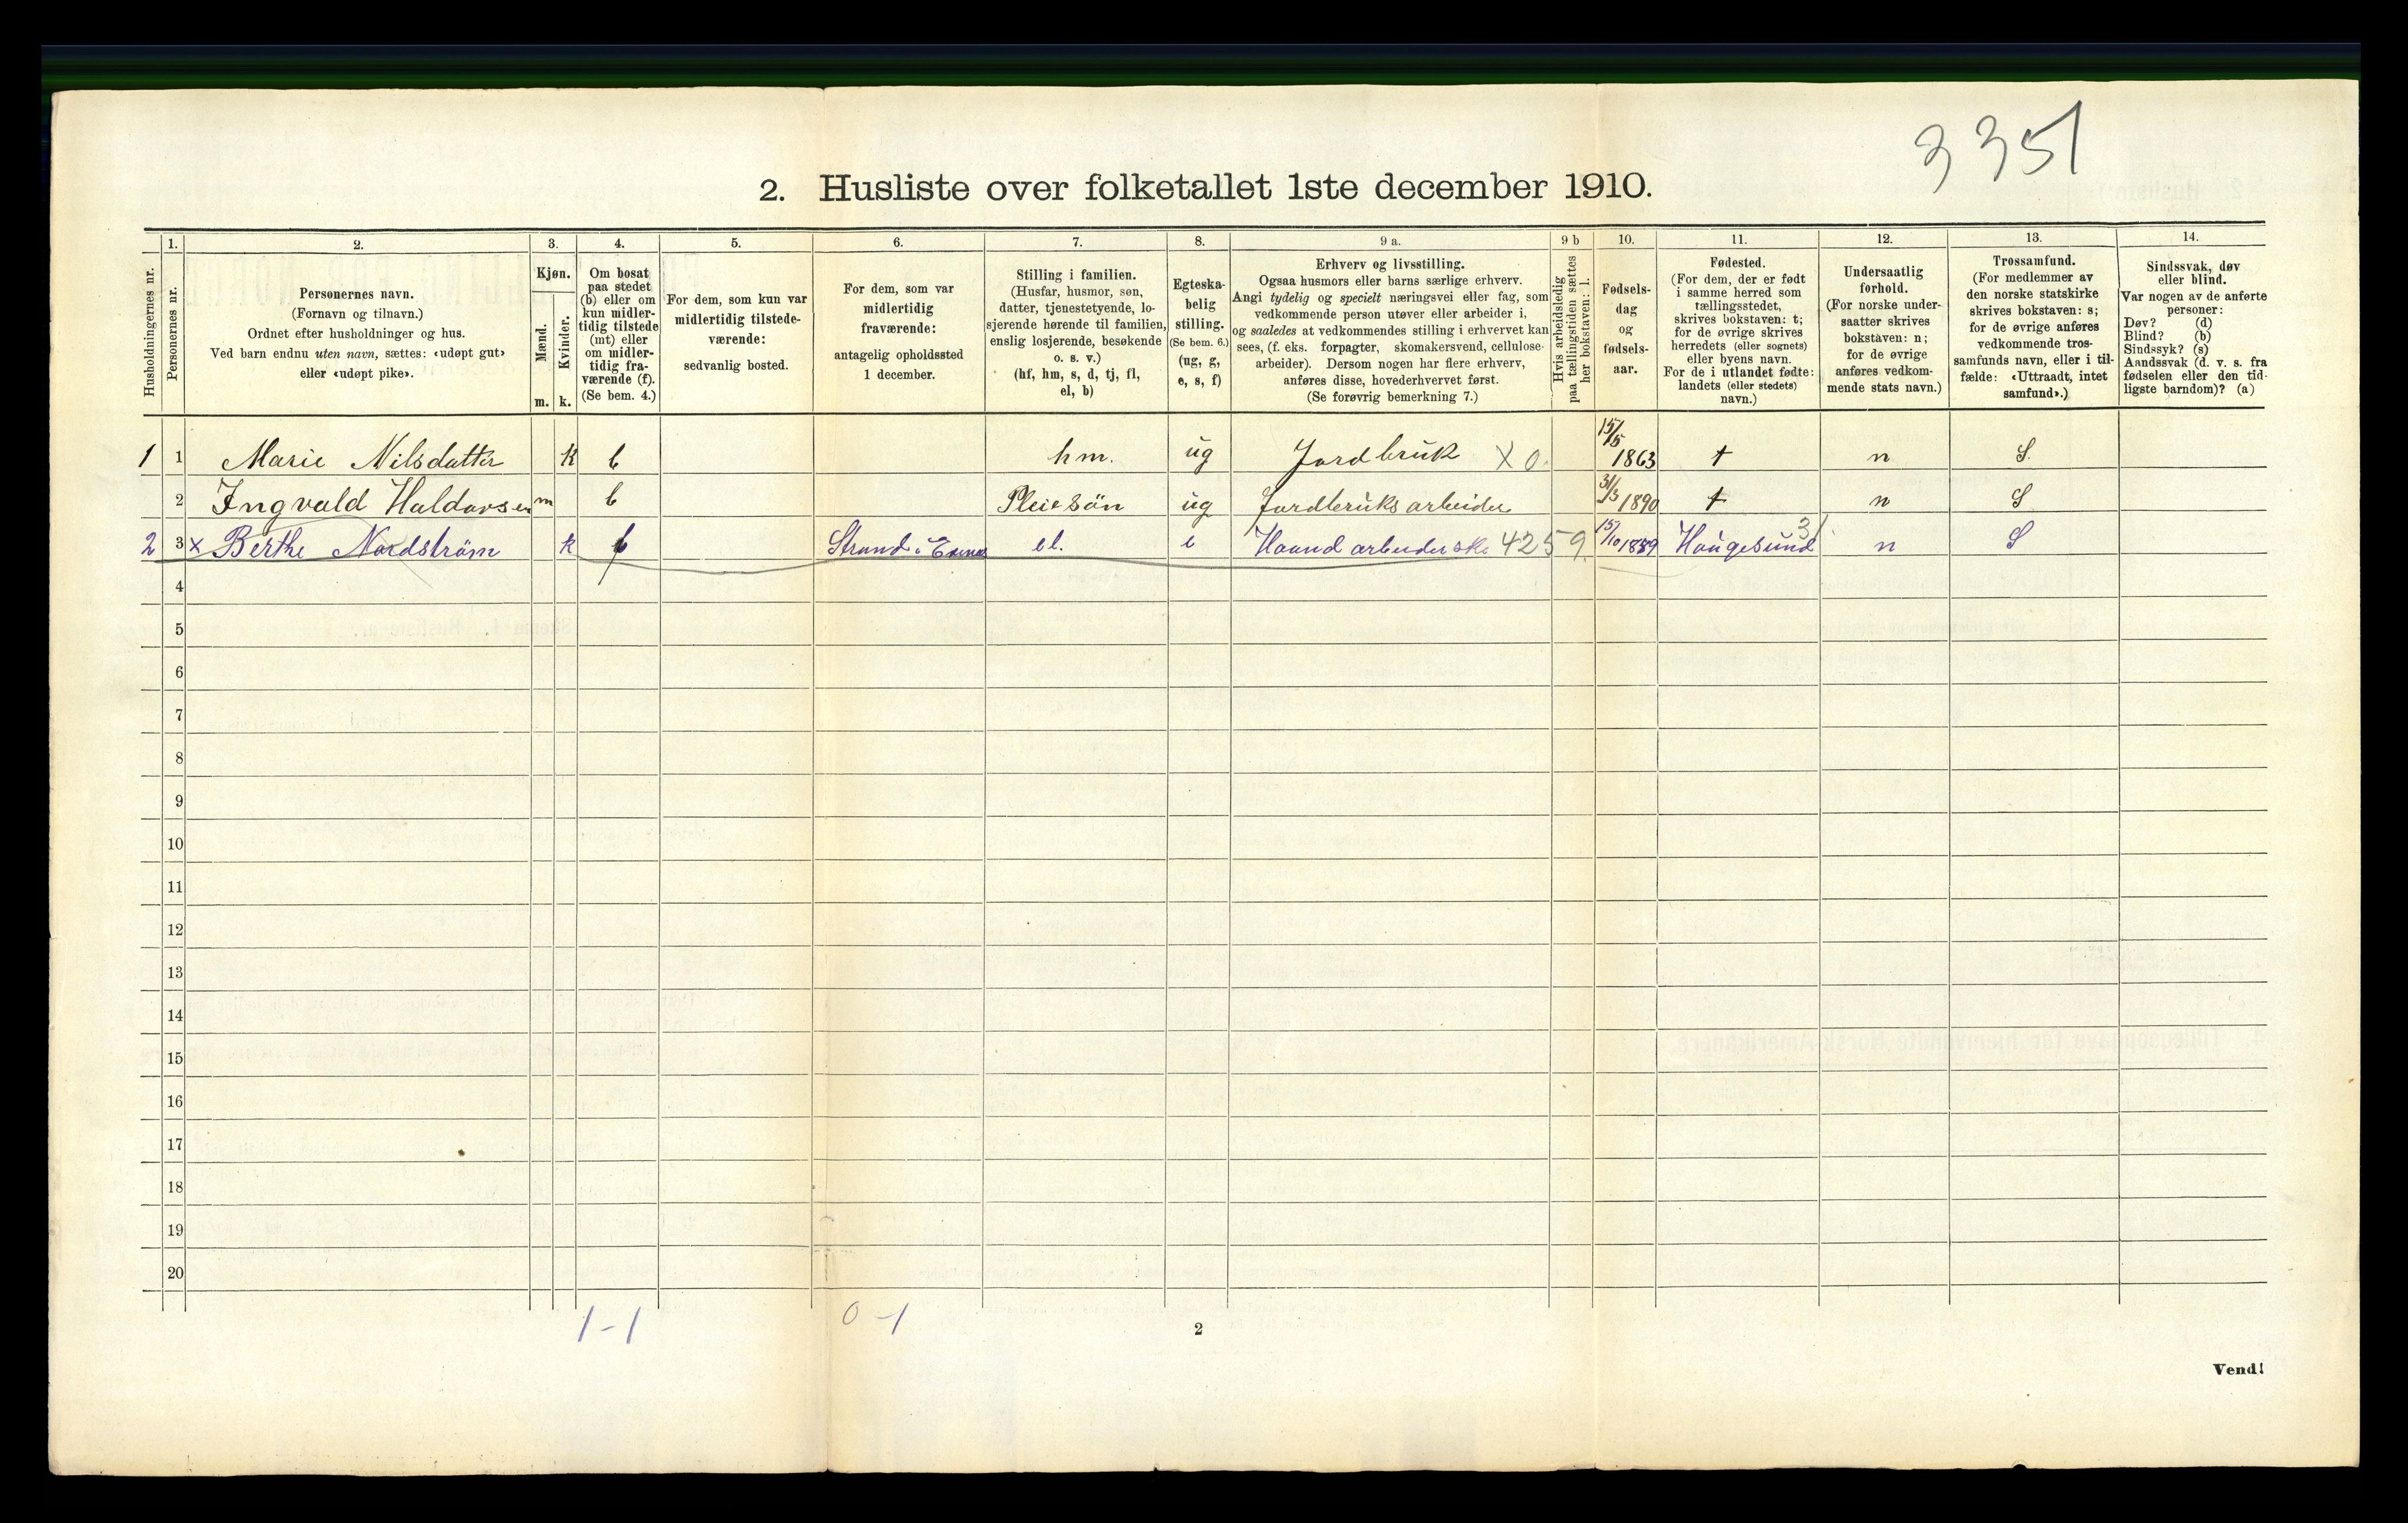 3351
2. Husliste over folketallet 1ste december 1910.
Husholdningernes nr.
1.
Personernes nr.
2.
Personernes navn.
(Fornavn og tilnavn.)
Ordnet efter husholdninger og hus.
Ved barn endnu uten navn, sættes: «udøpt gut»
eller «udøpt pike».
3.
Kjøn.
Mænd.
Kvinder.
m. k.
4.
Om bosat
paa stedet
(b) eller om
kun midler-
tidig tilstede
(mt) eller
om midler-
tidig fra-
værende (f).
(Se bem. 4.)
5.
For dem, som kun var
midlertidig tilstede-
værende:
sedvanlig bosted.
6.
For dem, som var
midlertidig
fraværende:
antagelig opholdssted
1 december.
7.
Stilling i familien.
(Husfar, husmor, søn,
datter, tjenestetyende, lo-
sjerende hørende til familien,
enslig losjerende, besøkende
o. s. v.)
(hf, hm, s, d, tj, fl,
el, b)
8.
Egteska-
belig
stilling.
(Se bem. 6.)
(ug, g,
e, s, f)
9 a.
Erhverv og livsstilling.
Ogsaa husmors eller barns særlige erhverv.
Angi tydelig og specielt næringsvei eller fag, som
vedkommende person utøver eller arbeider i,
og saaledes at vedkommendes stilling i erhvervet kan
sees, (f. eks. forpagter, skomakersvend, cellulose-
arbeider). Dersom nogen har flere erhverv,
anføres disse, hovederhvervet først.
(Se forøvrig bemerkning 7.)
9 b
Hvis arbeidsledig
paa tællingstiden sættes
her bokstaven: l.
10.
Fødsels-
dag
og
fødsels-
aar.
11.
Fødested.
(For dem, der er født
i samme herred som
tællingsstedet,
skrives bokstaven: t;
for de øvrige skrives
herredets (eller sognets)
eller byens navn.
For de i utlandet fødte:
landets (eller stedets)
navn.)
12.
Undersaatlig
forhold.
(For norske under-
saatter skrives
bokstaven: n;
for de øvrige
anføres vedkom-
mende stats navn.)
13.
Trossamfund.
(For medlemmer av
den norske statskirke
skrives bokstaven: s;
for de øvrige anføres
vedkommende tros-
samfunds navn, eller i til-
fælde: «Uttraadt, intet
samfund».)
14.
Sindssvak, døv
eller blind.
Var nogen av de anførte
personer:
Døv? (d)
Blind? (b)
Sindssyk? (s)
Aandssvak (d. v. s. fra
fødselen eller den tid-
ligste barndom)? (a)
1 1 Marie Nilsdatter k b hm. ug Jordbruk X 0. 15/5 1863 t n S.
2 Ingvald Haldorsen m b Pleiesön ug Jordbruks arbeider 31/3 1890 t n S
2 3 x Berthe Nordström k b Strand i el. e Haand arbeiderske 4259. 15/10 Haugesund 31 n S
4
5
6
7
8
9
10
11
12
13
14
15
16
17
18
19
20
1-1 0-1
2
Vend!